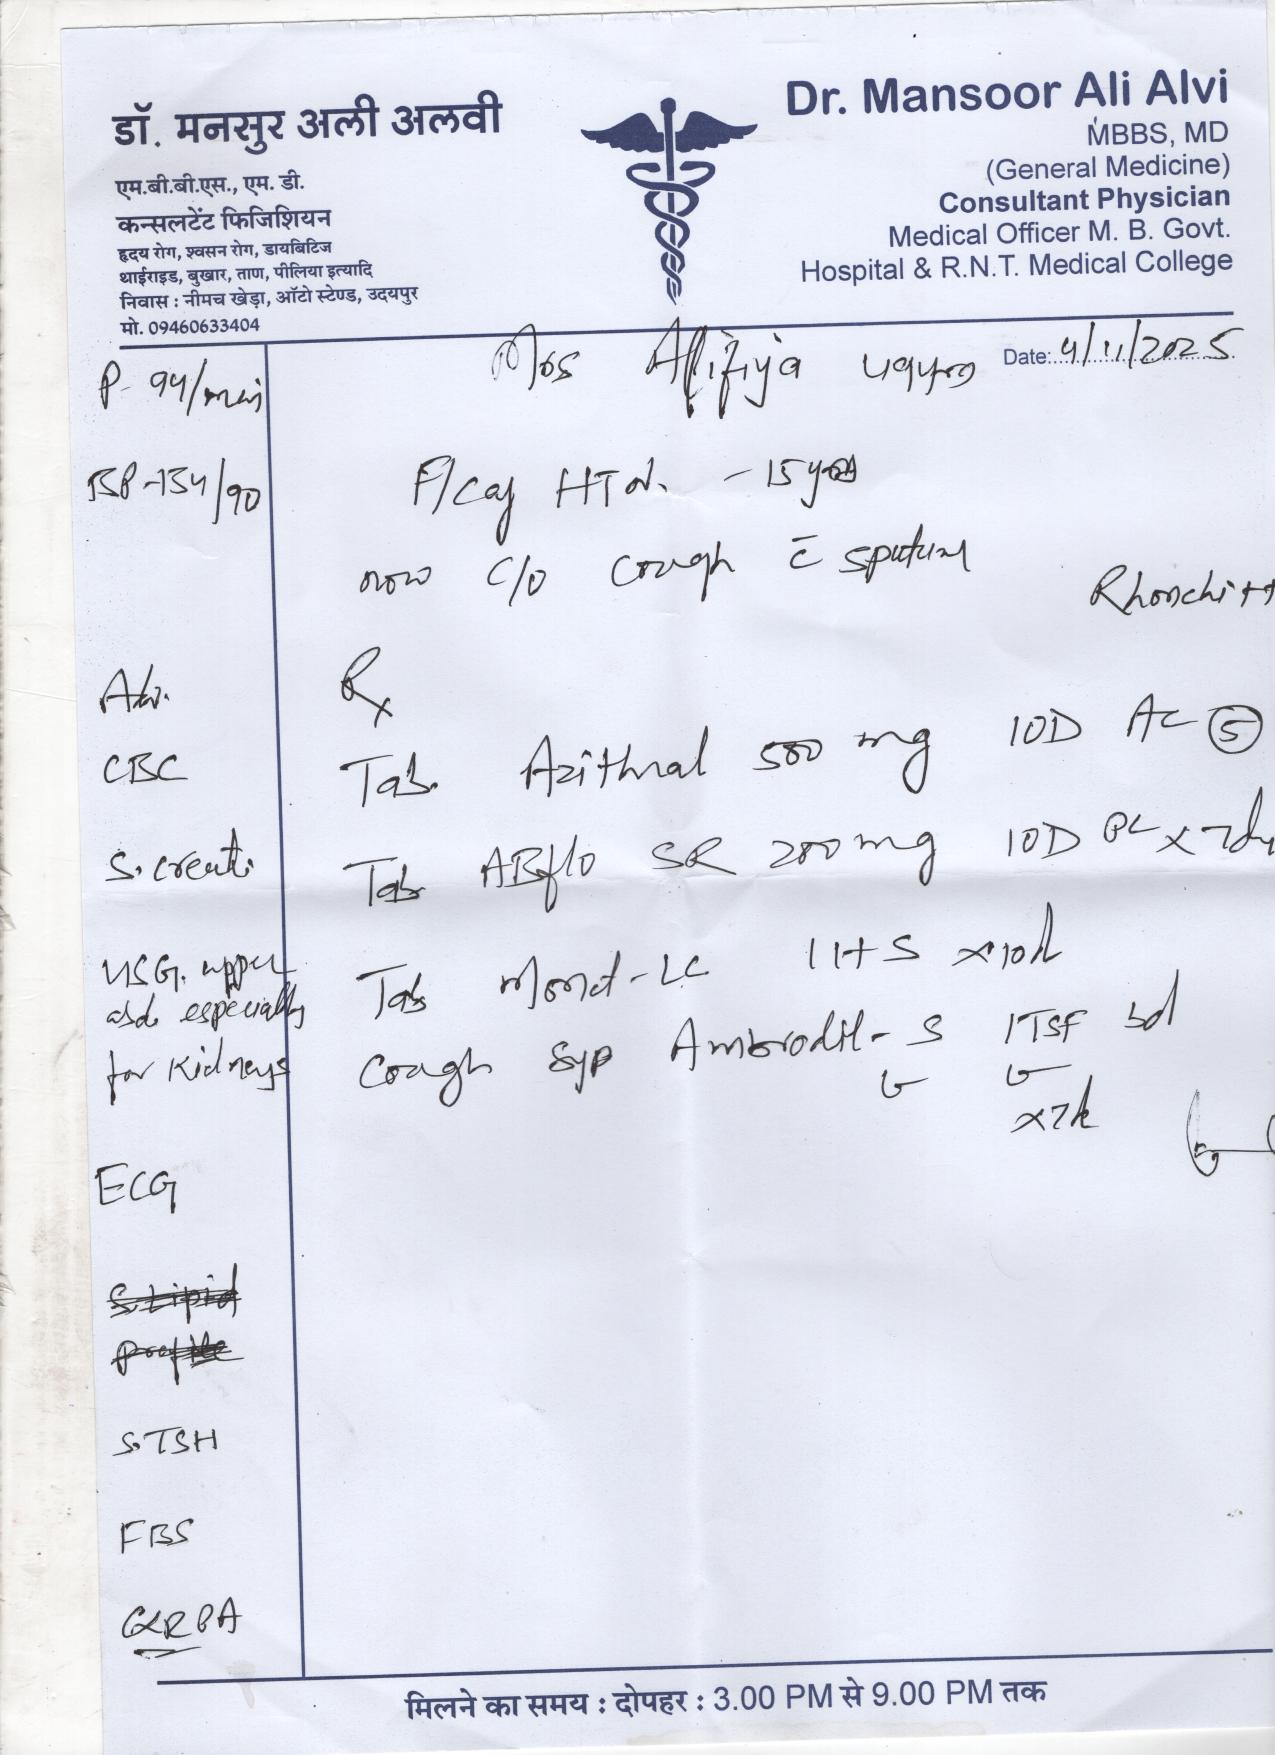 डॉ. मनसुर अली अलवी
एम.बी.बी.एस., एम. डी.
कन्सलटेंट फिजिशियन
हृदय रोग, श्वसन रोग, डायबिटिज
थाईराइड, बुखार, ताण, पीलिया इत्यादि
निवास : नीमच खेड़ा, ऑटो स्टेण्ड, उदयपुर
मो. 09460633404
Dr. Mansoor Ali Alvi
MBBS, MD
(General Medicine)
Consultant Physician
Medical Officer M. B. Govt.
Hospital & R.N.T. Medical College
Date: 4/11/2025
Mrs
P- 94/min
BP-154/90
HTN.
now C/O Cough c̄ sputum
Rhonchi ++
Adv.
CBC
S. creati.
USG. upper
abd. especially
for Kidneys
ECG
S. Lipid
profile
S. TSH
FBS
Rx
Tab. Azithral 500 mg 1OD AC ⑤
Tab ABflo SR 200 mg 1OD PC x 7d
Tab Mont-LC 1HS x10d
Cough Syp Ambrodil-S 1TSF bd
x7d
मिलने का समय : दोपहर : 3.00 PM से 9.00 PM तक